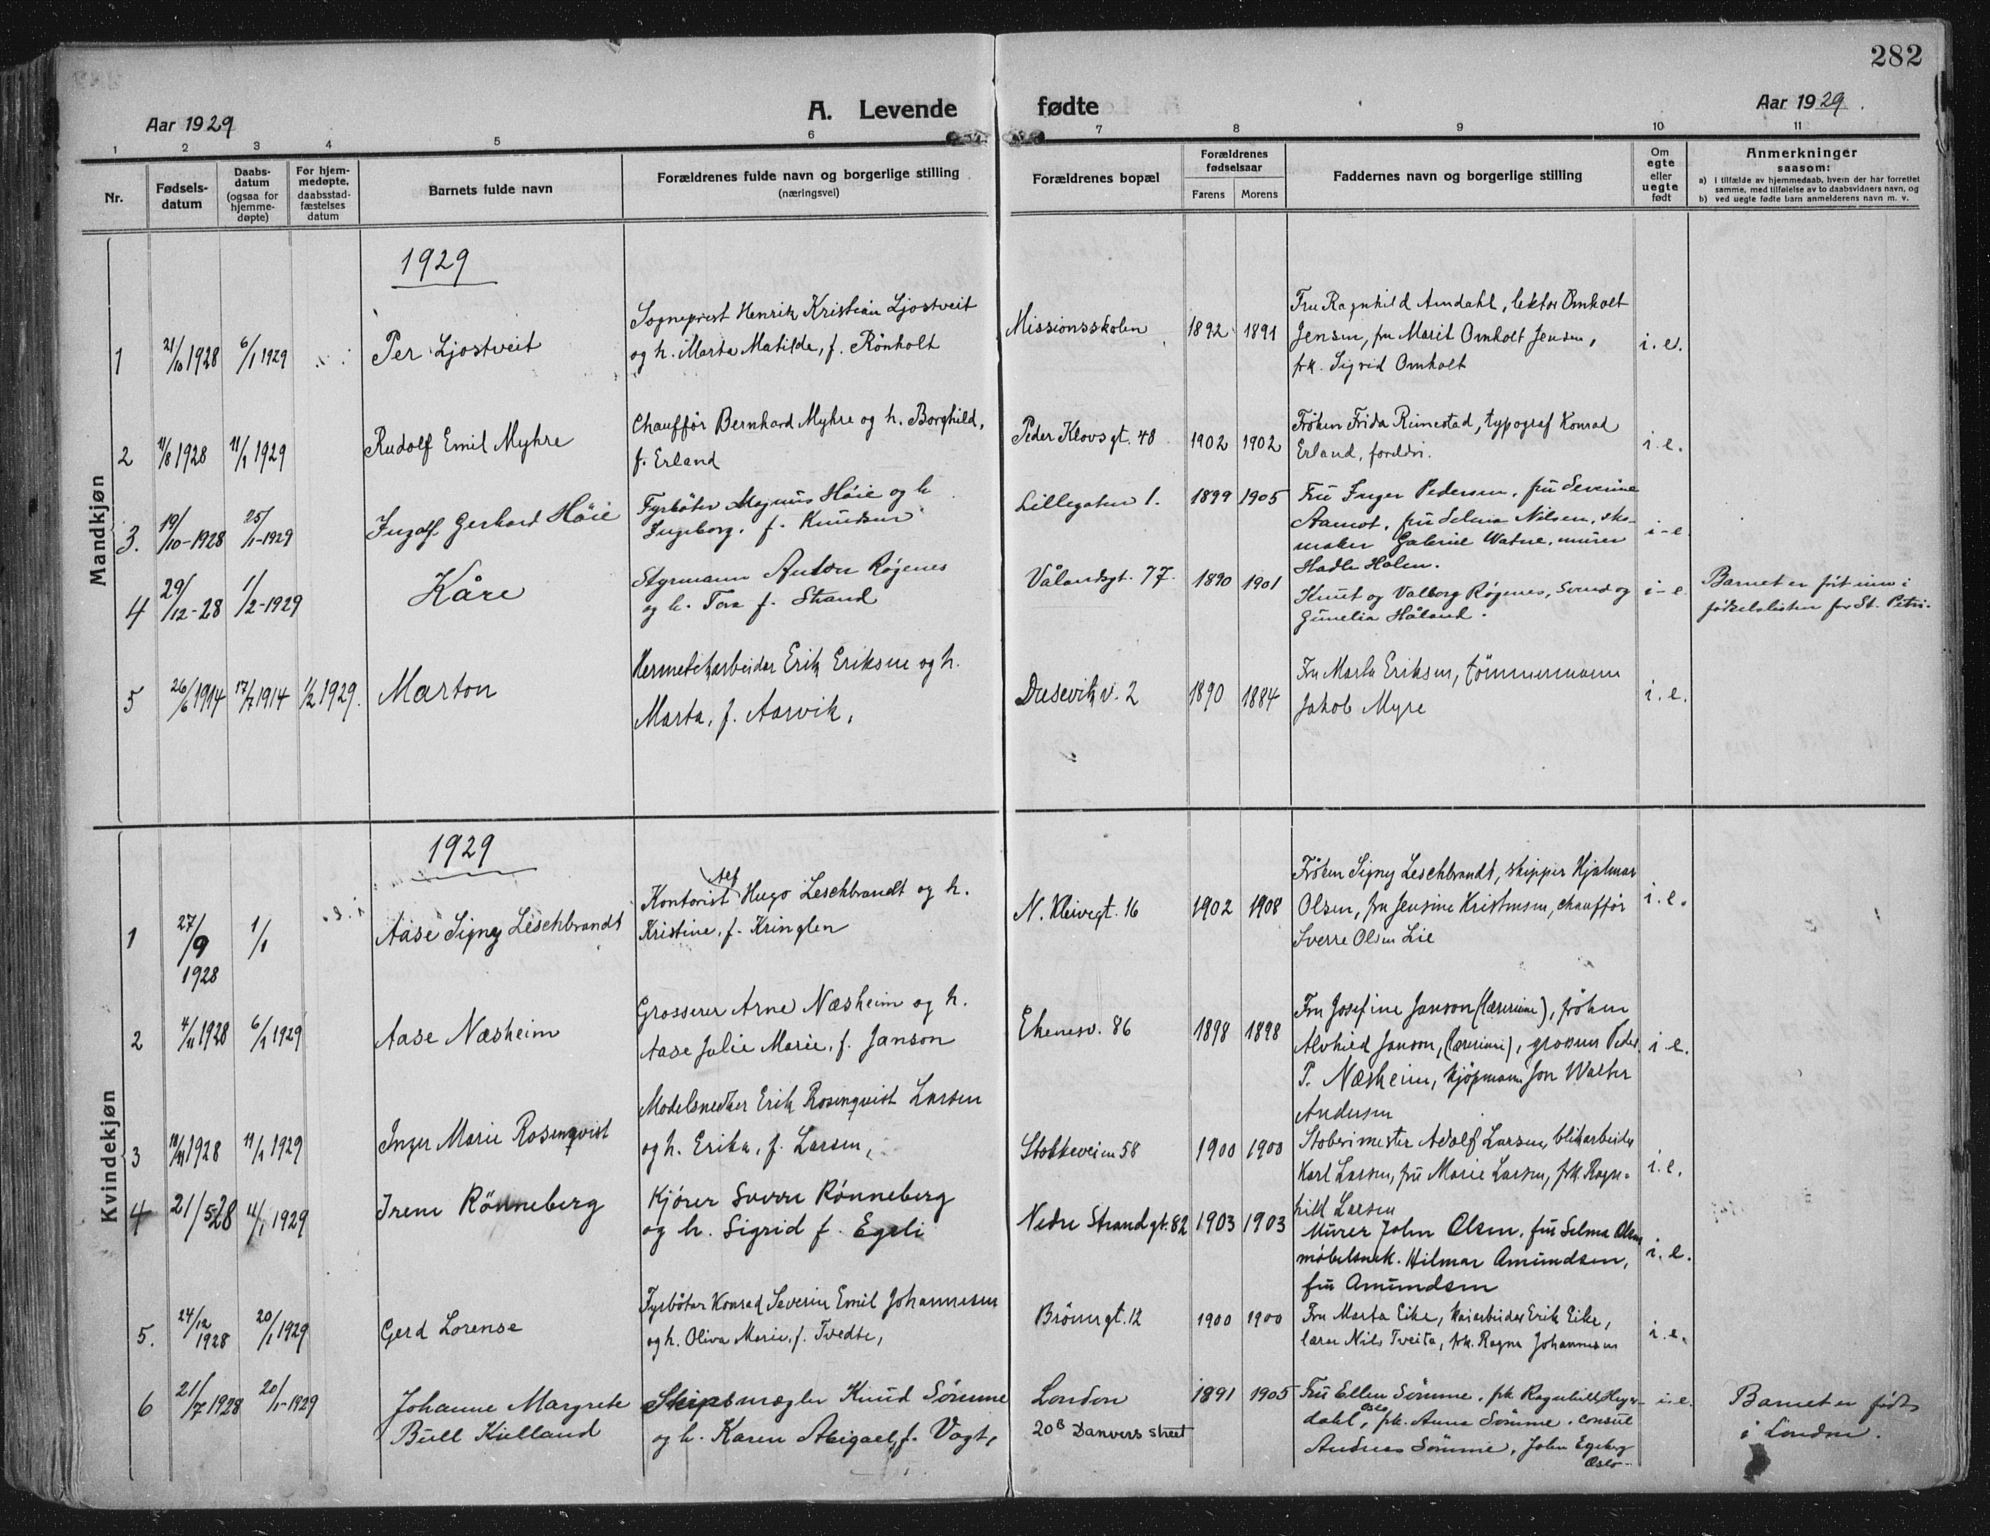 282
Aar 1929
A. Levende fødte
Aar 1929.
1 2 3 4 5 6 7 8 9 10 11
Nr.
Fødsels-
datum
Daabs-
datum
(ogsaa for
hjemme-
døpte)
For hjem-
medøpte,
daabsstad-
fæstelses
datum
Barnets fulde navn
Forældrenes fulde navn og borgerlige stilling
(næringsvei)
Forældrenes bopæl
Forældrenes
fødselsaar
Farens Morens
Faddernes navn og borgerlige stilling
Om
egte
eller
uegte
født
Anmerkninger
saasom:
a) i tilfælde av hjemmedaab, hvem der har forrettet
samme, med tilføielse av to daabsvidners navn, og
b) ved uegte fødte barn anmelderens navn m. v.
Mandkjøn
1929
1 21/10 1928 6/1 1929 Per Ljostveit
Sogneprest Henrik Kristian Ljostveit
og h. Marta Matilde, f. Rönholt
Missionsskolen 1892 1891
Fru Ragnhild Amdahl, lektor Omholt
Jensen, fru Marit Omholt Jensen,
frk. Sigrid Omholt
i. e.
2 11/8 1928 11/1 1929 Rudolf Emil Myhre
Chauffør Bernhard Myhre og h. Borghild,
f. Erland
Peder Klovsgt. 48 1902 1902
Frøken Frida Rimestad, typograf Konrad
Erland, foreldri.
i. e.
3. 19/10-1928 25/1-1929 Ingolf Gerhard Höie
Fyrbøter Magnus Höie og h
Ingeborg, f. Knudsen
Lillegaten 1. 1899 1905
Fru Inger Pedersen, fru Severine
Aamot, fru Selma Nilsen, sko-
maker Gabriel Watne, murer
Hadle Holen.
i-e
4 29/12-28 1/2-1929 Kåre
Styrmann Anton Røgenes
og h. Tora f. Strand
Vålandsgt. 77. 1890 1901
Knut og Valborg Røgenes, Svend og
Gunelia Håland.
i-e
Barnet er ført inn i
fødselslisten for St. Petri.
5 26/6 1914 17/7 1914 1/2 1929. Marton
Hermetikarbeider Erik Eriksen og h.
Marta, f. Aarvik,
Dusevik v. 2 1890 1884
Fru Marta Eriksen, tömmermann
Jakob Myre
i. e.
Kvindekjøn
1929
1 27/9 1928 1/1 Aase Signy Leschbrandt
Kontorist Alf Hugo Leschbrandt og h.
Kristine, f. Kringlen
N. Kleivegt. 16 1902 1908
Frøken Signy Leschbrandt, skipper Hjalmar
Olsen, fru Jensine Kristensen, chauffør
Sverre Olsen Lie
i. e.
2 4/11 1928 6/1 1929 Aase Næsheim
Grosserer Arne Næsheim og h.
Aase Julie Marie, f. Janson
Ekenesv. 86 1898 1898
Fru Josefine Janson (lærerinne), frøken
Alvhild Janson, (lærerinne), grosserer Peder
P. Næsheim, kjøpmann Jon Walter
Andersen
i. e.
3 18/11 1928 11/1 1929 Inger Marie Rosenqvist
Modelsnedker Erik Rosenqvist Larsen
og h. Erika, f. Larsen,
Stokkeveien 58 1900 1900
Støberimester Adolf Larsen, blikarbeider
Karl Larsen, fru Marie Larsen, frk. Ragn-
hild Larsen
i. e.
4 21/5 28 11/1 1929 Irene Rönneberg
Kjører Sverre Rønneberg
og h. Sigrid f. Egeli
Nedre Strandgt. 82 1903 1903
Murer John Olsen, fru Selma Olsen
møbelsnek. Hilmar Amundsen,
fru Amundsen
i. e.
5. 24/12 1928 20/1 1929 Gerd Lorense
Fyrbøter Konrad Severin Emil Johannesen
og h. Oliva Marie, f. Tvedte,
Brönngt. 12 1900 1900
Fru Marta Eike, kaiarbeider Erik Eike,
lærer Nils Tveita, frk. Ragna Johannesen
i. e.
6 21/7 1928 20/1-1929 Johanne Margrete
Bull Kielland
Skipsmægler Knud Sömme
og h. Karen Abigael, f. Vogt,
London
20B Danvers street
1891 1905
Fru Ellen Sömme, frk Ragnhild Heyer-
dahl, Oslo, frk. Anna Sömme, consul
Andreas Sömme, John Egeberg
Oslo-
i. e.
Barnet er født
i London.